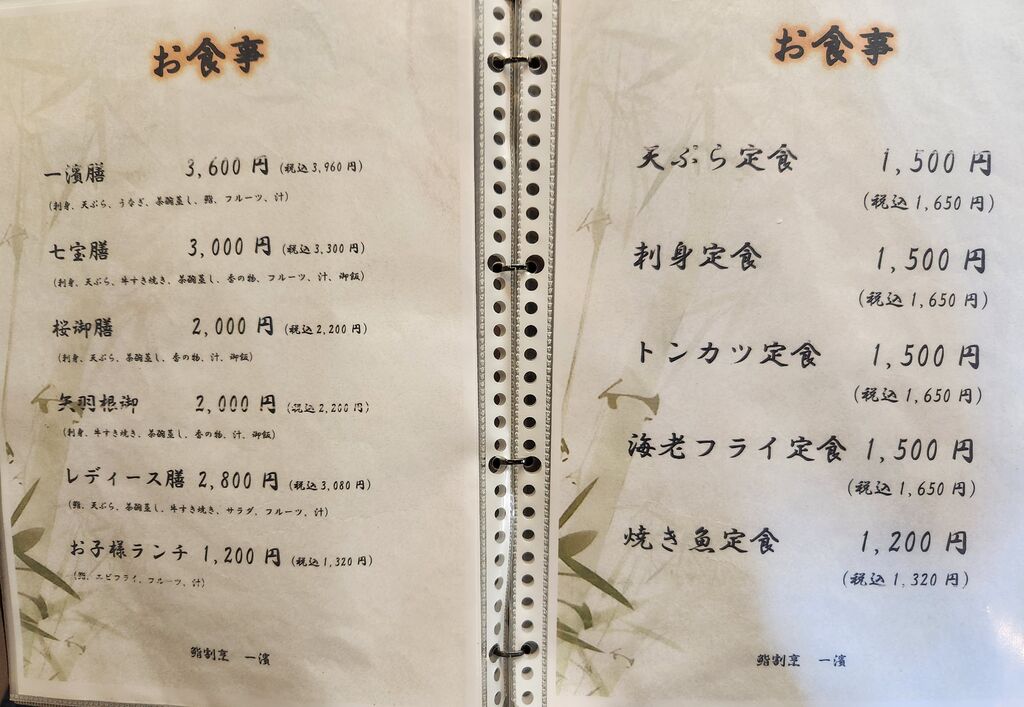 お食事
一濱膳 3,600円 (税込3,960円)
(刺身、天ぷら、うなぎ、茶碗蒸し、鮨、フルーツ、汁)
七宝膳 3,000円 (税込3,300円)
(刺身、天ぷら、牛すき焼き、茶碗蒸し、香の物、フルーツ、汁、御飯)
桜御膳 2,000円 (税込2,200円)
(刺身、天ぷら、茶碗蒸し、香の物、汁、御飯)
矢羽根御 2,000円 (税込2,200円)
(刺身、牛すき焼き、茶碗蒸し、香の物、汁、御飯)
レディース膳 2,800円 (税込3,080円)
(鮨、天ぷら、茶碗蒸し、牛すき焼き、サラダ、フルーツ、汁)
お子様ランチ 1,200円 (税込1,320円)
(鮨、エビフライ、フルーツ、汁)
鮨割烹 一濱
お食事
天ぷら定食 1,500円
(税込1,650円)
刺身定食 1,500円
(税込1,650円)
トンカツ定食 1,500円
(税込1,650円)
海老フライ定食 1,500円
(税込1,650円)
焼き魚定食 1,200円
(税込1,320円)
鮨割烹 一濱